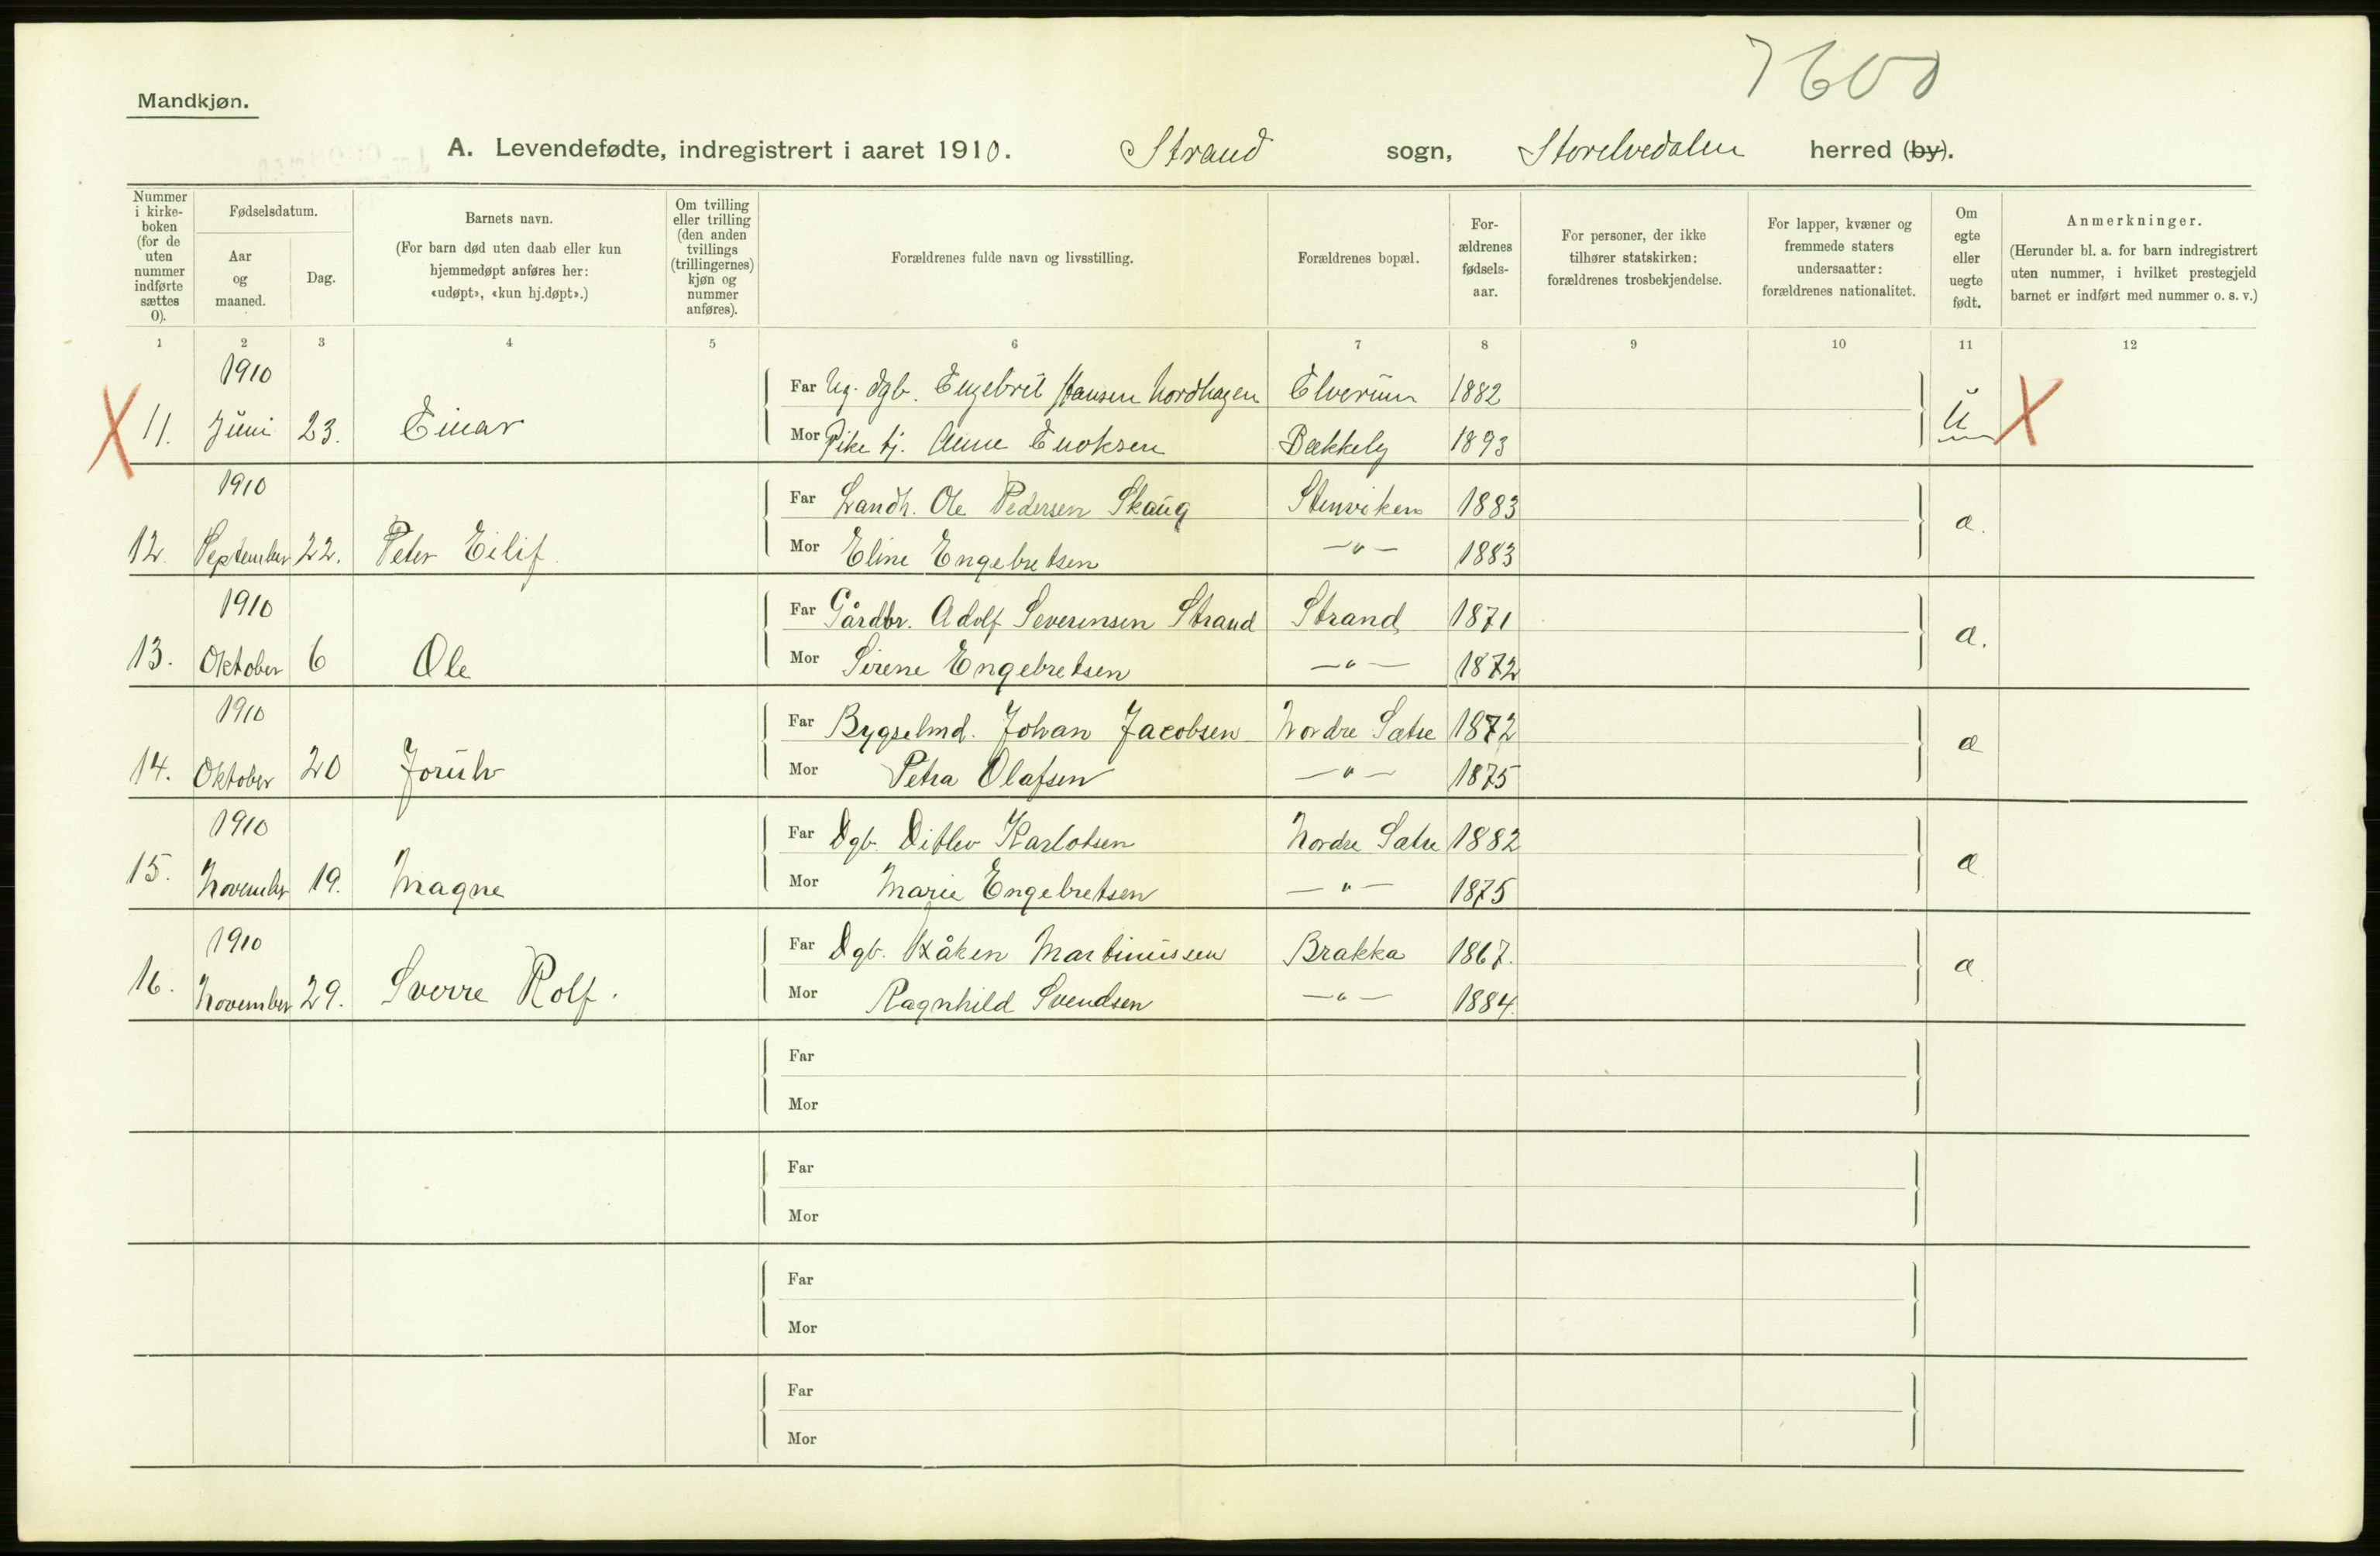 7600
Mandkjøn.
A. Levendefødte, indregistrert i aaret 1910. Strand sogn, Storelvedalen herred (by).
Nummer i kirke-boken (for de uten nummer indførte sættes 0).
Fødselsdatum.
Aar og maaned.
Dag.
Barnets navn.
(For barn død uten daab eller kun hjemmedøpt anføres her: «udøpt», «kun hj.døpt».)
Om tvilling eller trilling (den anden tvillings (trillingernes) kjøn og nummer anføres).
Forældrenes fulde navn og livsstilling.
Forældrenes bopæl.
For-ældrenes fødsels-aar.
For personer, der ikke tilhører statskirken: forældrenes trosbekjendelse.
For lapper, kvæner og fremmede staters undersaatter: forældrenes nationalitet.
Om egte eller uegte født.
Anmerkninger.
(Herunder bl. a. for barn indregistrert uten nummer, i hvilket prestegjeld barnet er indført med nummer o. s. v.)
1 2 3 4 5 6 7 8 9 10 11 12
1910
Far Ug. dgb. Engebret Hansen Nordhagen Elverum 1882
X 11. Juni 23. Einar ŭ X
Mor Pike tj. Anne Enoksen Bækkely 1893
1910
Far Landh. Ole Pedersen Skaug Stenviken 1883
12. September 22. Peter Eilif a.
Mor Eline Engebretsen —"— 1883
1910
Far Gårdbr. Adolf Severinsen Strand Strand 1871
13. Oktober 6 Ole a.
Mor Sirene Engebretsen —"— 1872
1910
Far Bygselmd. Johan Jacobsen Nordre Sætre 1872
14. Oktober 20 a
Mor Petra Olafsen —"— 1875
1910
Far Dgb. Ditlev Karlotsen Nordre Sætre 1882
15. November 19. Magne a
Mor Marie Engebretsen —"— 1875
1910
Far Dgb. Håken Martinussen Brakka 1867.
16. November 29. Sverre Rolf. a
Mor Ragnhild Svendsen —"— 1884.
Far
Mor
Far
Mor
Far
Mor
Far
Mor